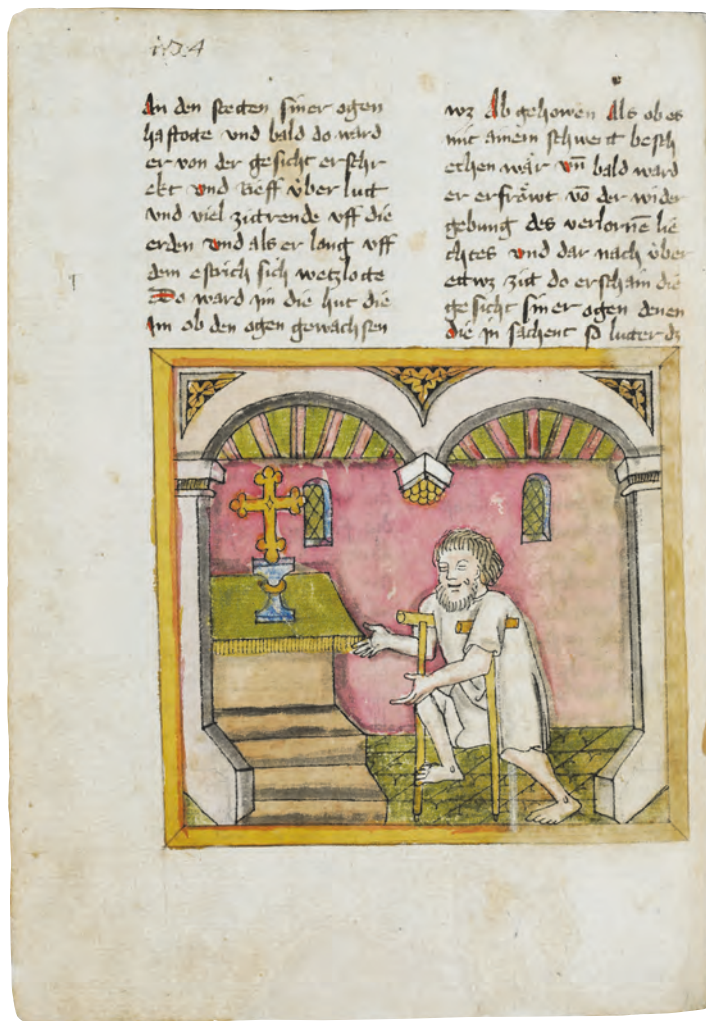 174
An den stetten siner ogen
haftote vnd bald do ward
er von der gesicht erschr
ekt vnd rieff v̈ber lutt
vnd viel zittrende vff die
erden vnd als er lang vff
dem estrich sich wetzlotte
Do ward jm die hut die
jm ob den ogen gewachsen
wz Ab gehowen Als ob es
mit ainem schwertt besch
echen wär vn̄ bald ward
er erfröwt vō der wider
gebung des verlornē lie
chtes vnd dar nach v̈ber
ettwz zitt do erschain die
gesicht siner ogen denen
die jn sachent so luter dz